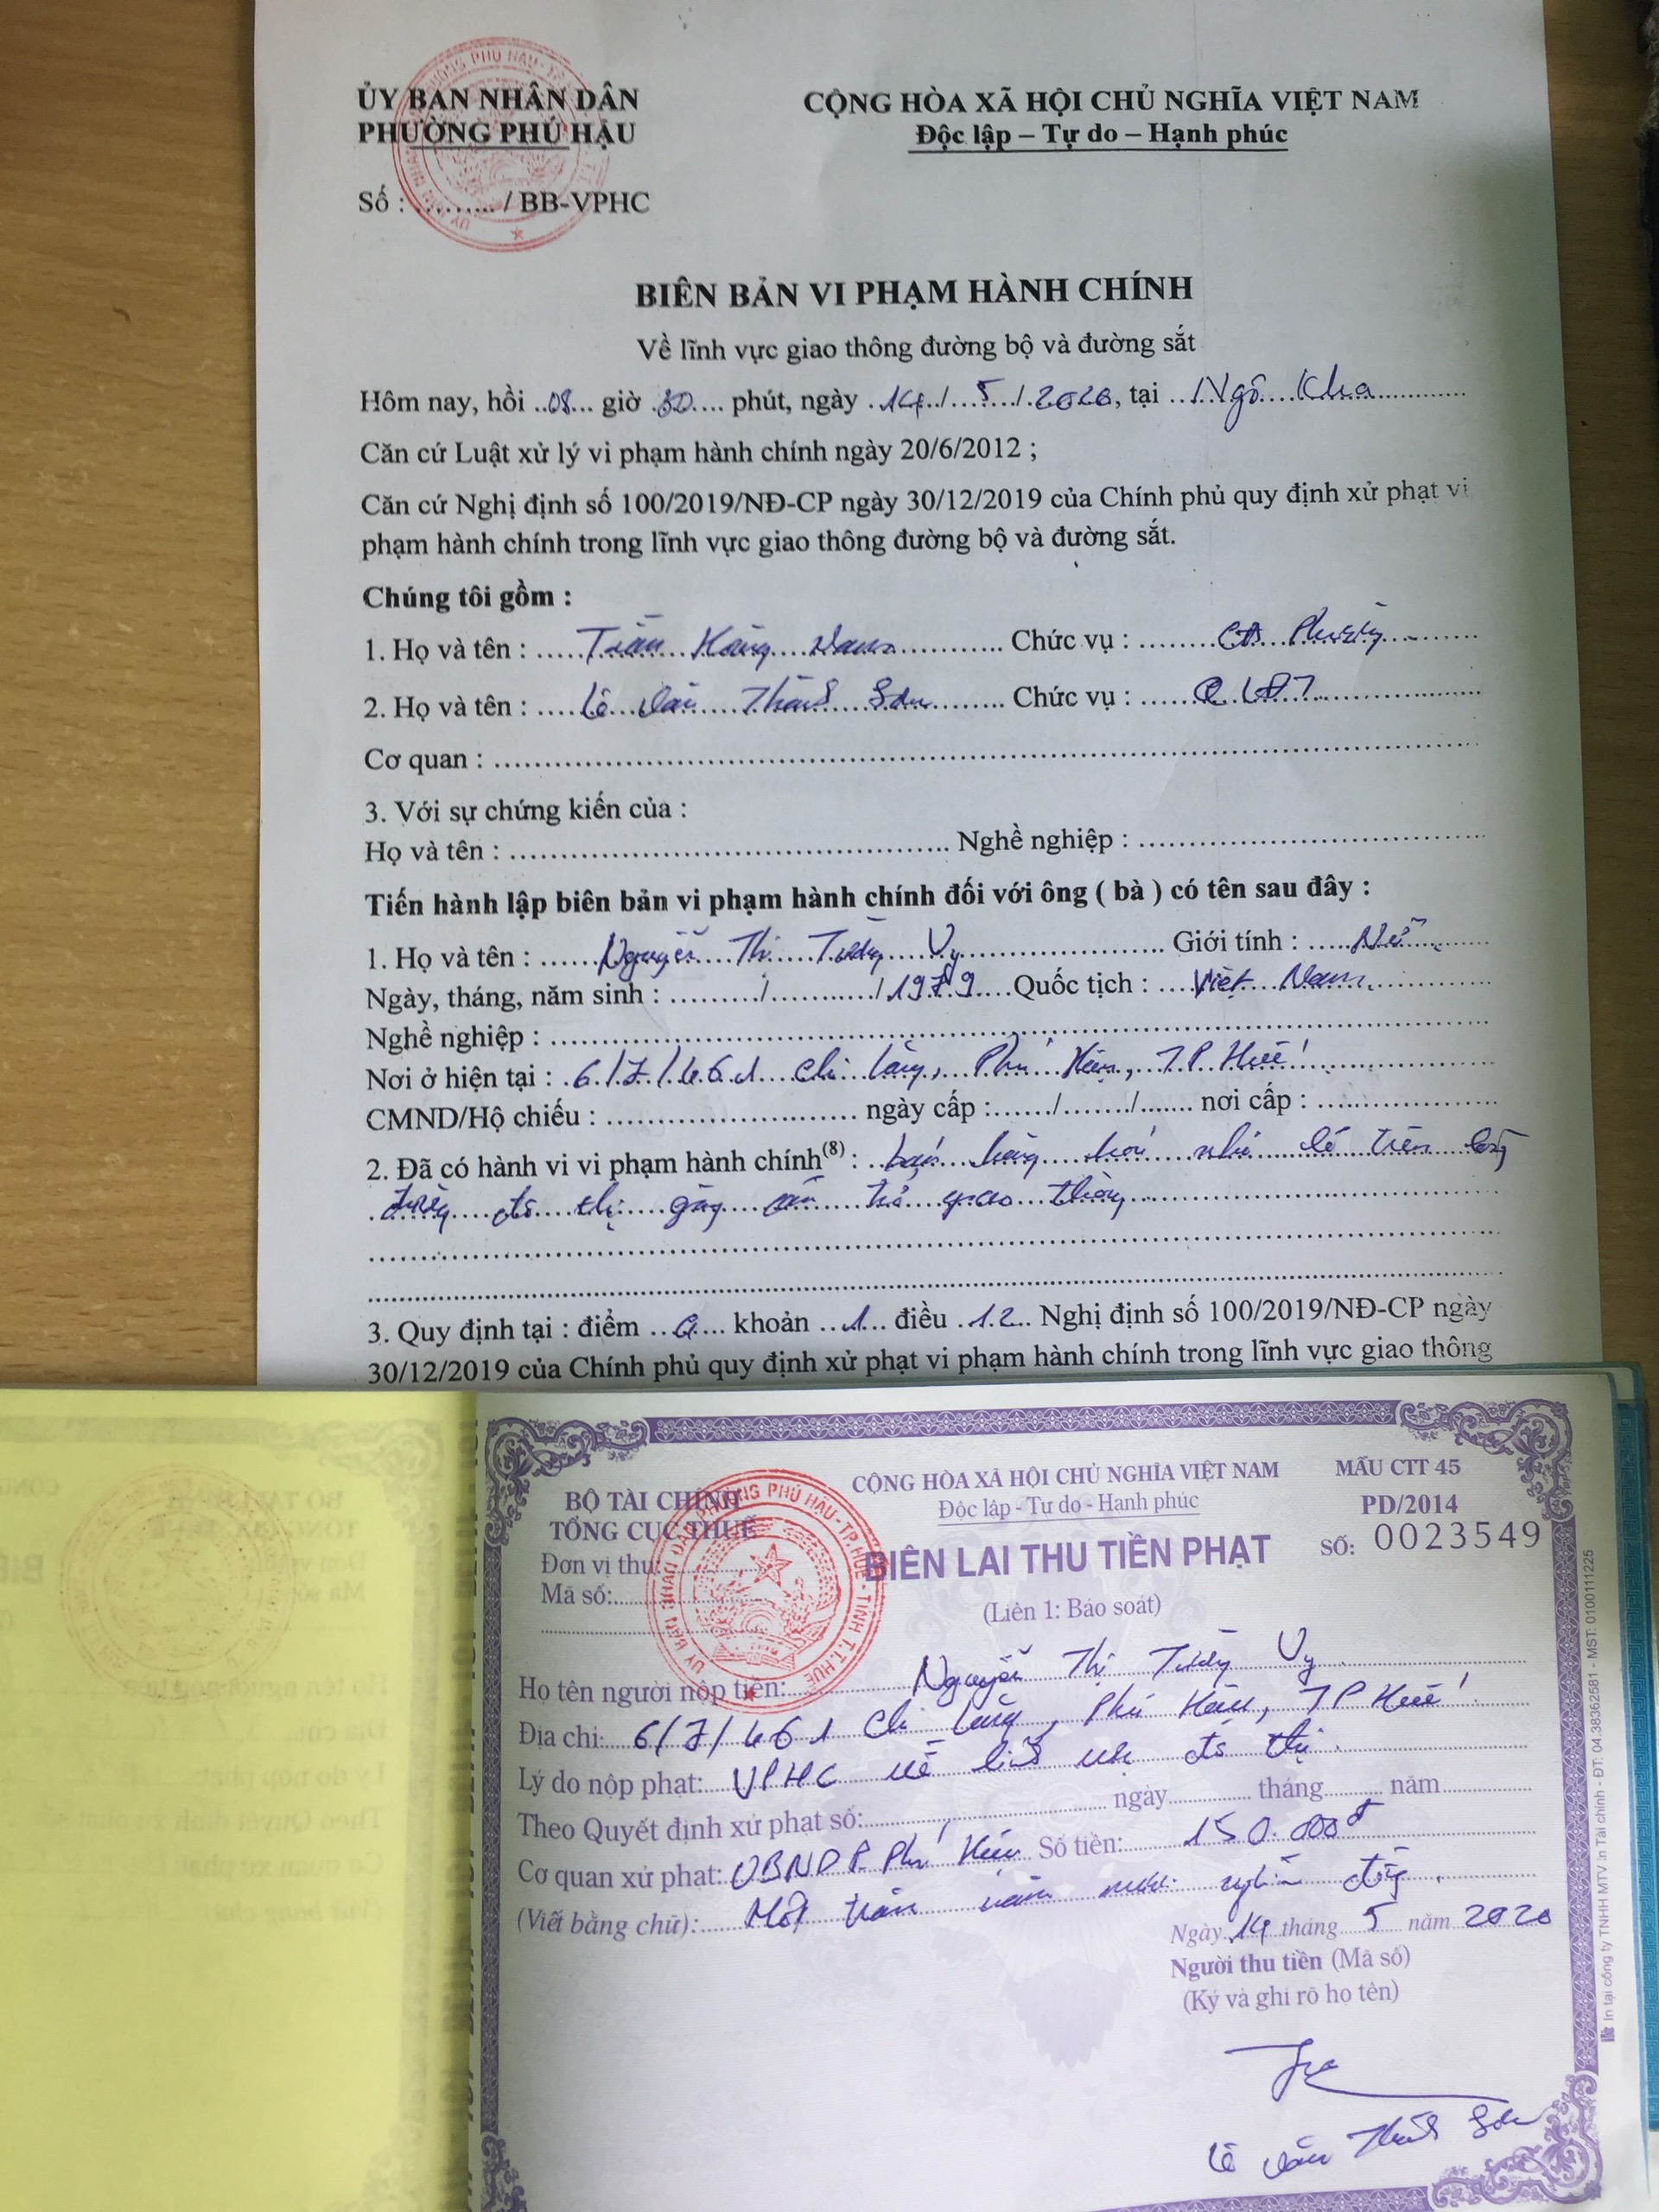 ỦY BAN NHÂN DÂN
PHƯỜNG PHÚ HẬU
Số : ......... / BB-VPHC
CỘNG HÒA XÃ HỘI CHỦ NGHĨA VIỆT NAM
Độc lập – Tự do – Hạnh phúc
BIÊN BẢN VI PHẠM HÀNH CHÍNH
Về lĩnh vực giao thông đường bộ và đường sắt
Hôm nay, hồi 08 giờ 30 phút, ngày 14 / 5 / 2020, tại Ngô Kha
Căn cứ Luật xử lý vi phạm hành chính ngày 20/6/2012 ;
Căn cứ Nghị định số 100/2019/NĐ-CP ngày 30/12/2019 của Chính phủ quy định xử phạt vi
phạm hành chính trong lĩnh vực giao thông đường bộ và đường sắt.
Chúng tôi gồm :
1. Họ và tên : Trần Hoàng Nam Chức vụ : CA Phường
2. Họ và tên : Lê Văn Thành Sơn Chức vụ : QLĐT
Cơ quan :
3. Với sự chứng kiến của :
Họ và tên : Nghề nghiệp :
Tiến hành lập biên bản vi phạm hành chính đối với ông ( bà ) có tên sau đây :
1. Họ và tên : Nguyễn Thị Tường Vy Giới tính : Nữ
Ngày, tháng, năm sinh : / / 1979 Quốc tịch : Việt Nam
Nghề nghiệp :
Nơi ở hiện tại : 6/7/461 Chi Lăng, Phú Hậu, TP Huế
CMND/Hộ chiếu : ngày cấp : / / nơi cấp :
2. Đã có hành vi vi phạm hành chính(8) : bán hàng hoá nhỏ lẻ trên lòng
đường đô thị gây cản trở giao thông
3. Quy định tại : điểm a khoản 1 điều 12 Nghị định số 100/2019/NĐ-CP ngày
30/12/2019 của Chính phủ quy định xử phạt vi phạm hành chính trong lĩnh vực giao thông
BỘ TÀI CHÍNH
TỔNG CỤC THUẾ
Đơn vị thu:
Mã số:
CỘNG HÒA XÃ HỘI CHỦ NGHĨA VIỆT NAM
Độc lập - Tự do - Hạnh phúc
MẪU CTT 45
PD/2014
SỐ: 0023549
BIÊN LAI THU TIỀN PHẠT
(Liên 1: Báo soát)
ỦY BAN NHÂN DÂN PHƯỜNG PHÚ HẬU - TP. HUẾ - TỈNH T.T. HUẾ
Họ tên người nộp tiền: Nguyễn Thị Tường Vy
Địa chỉ: 6/7/461 Chi Lăng, Phú Hậu, TP Huế
Lý do nộp phạt: VPHC về đô thị
Theo Quyết định xử phạt số: ngày tháng năm
Cơ quan xử phạt: UBND P Phú Hậu Số tiền: 150.000đ
(Viết bằng chữ): Một trăm năm mươi nghìn đồng.
Ngày 14 tháng 5 năm 2020
Người thu tiền (Mã số)
(Ký và ghi rõ họ tên)
Lê Văn Thành Sơn
In tại công ty TNHH MTV In Tài chính - ĐT: 04.38362581 - MST: 0100111225